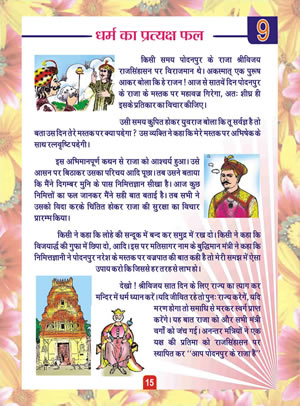 धर्म का प्रत्यक्ष फल
9
किसी समय पोदनपुर के राजा श्रीविजय
राजसिंहासन पर विराजमान थे। अकस्मात् एक पुरूष
आकर बोला कि हे राजन ! आज से सातवें दिन पोदनपुर
के राजा के मस्तक पर महावज्र गिरेगा, अतः शीघ्र ही
इसके प्रतिकार का विचार कीजिए।
उसी समय कुपित होकर युवराज बोला कि तू सर्वज्ञ है तो
बता उस दिन तेरे मस्तक पर क्या पड़ेगा ? उस व्यक्ति ने कहा कि मेरे मस्तक पर अभिषेक के
साथ रत्नवृष्टि पड़ेगी।
इस अभिमानपूर्ण कथन से राजा को आश्चर्य हुआ। उसे
आसन पर बिठाकर उसका परिचय आदि पूछा। तब उसने बताया
कि मैंने दिगम्बर मुनि के पास निमित्तज्ञान सीखा है। आज कुछ
निमित्तों का फल जानकर मैंने सही बात बताई है। तब सभी ने
उसको विदा करके चिंतित होकर राजा की सुरक्षा का विचार
प्रारम्भ किया।
किसी ने कहा कि लोहे की सन्दूक में बन्द कर समुद्र में रख दो। किसी ने कहा कि
विजयार्द्ध की गुफा में छिपा दो, आदि। इस पर मतिसागर नाम के बुद्धिमान मंत्री ने कहा कि
निमित्तज्ञानी ने पोदनपुर नरेश के मस्तक पर वज्रपात की बात कही है तो मेरी समझ में ऐसा
उपाय करो कि जिससे हर तरह से लाभ हो।
देखो ! श्रीविजय सात दिन के लिए राज्य का त्याग कर
मन्दिर में धर्म ध्यान करें। यदि जीवित रहे तो पुनः राज्य करेंगे, यदि
मरण होगा तो समाधि से मरकर स्वर्ग प्राप्त
करेंगे। यह बात राजा को और सभी मंत्री
वर्गों को जंच गई। अनन्तर मंत्रियों ने एक
यक्ष की प्रतिमा को राजसिंहासन पर
स्थापित कर "आप पोदनपुर के राजा हैं"
15